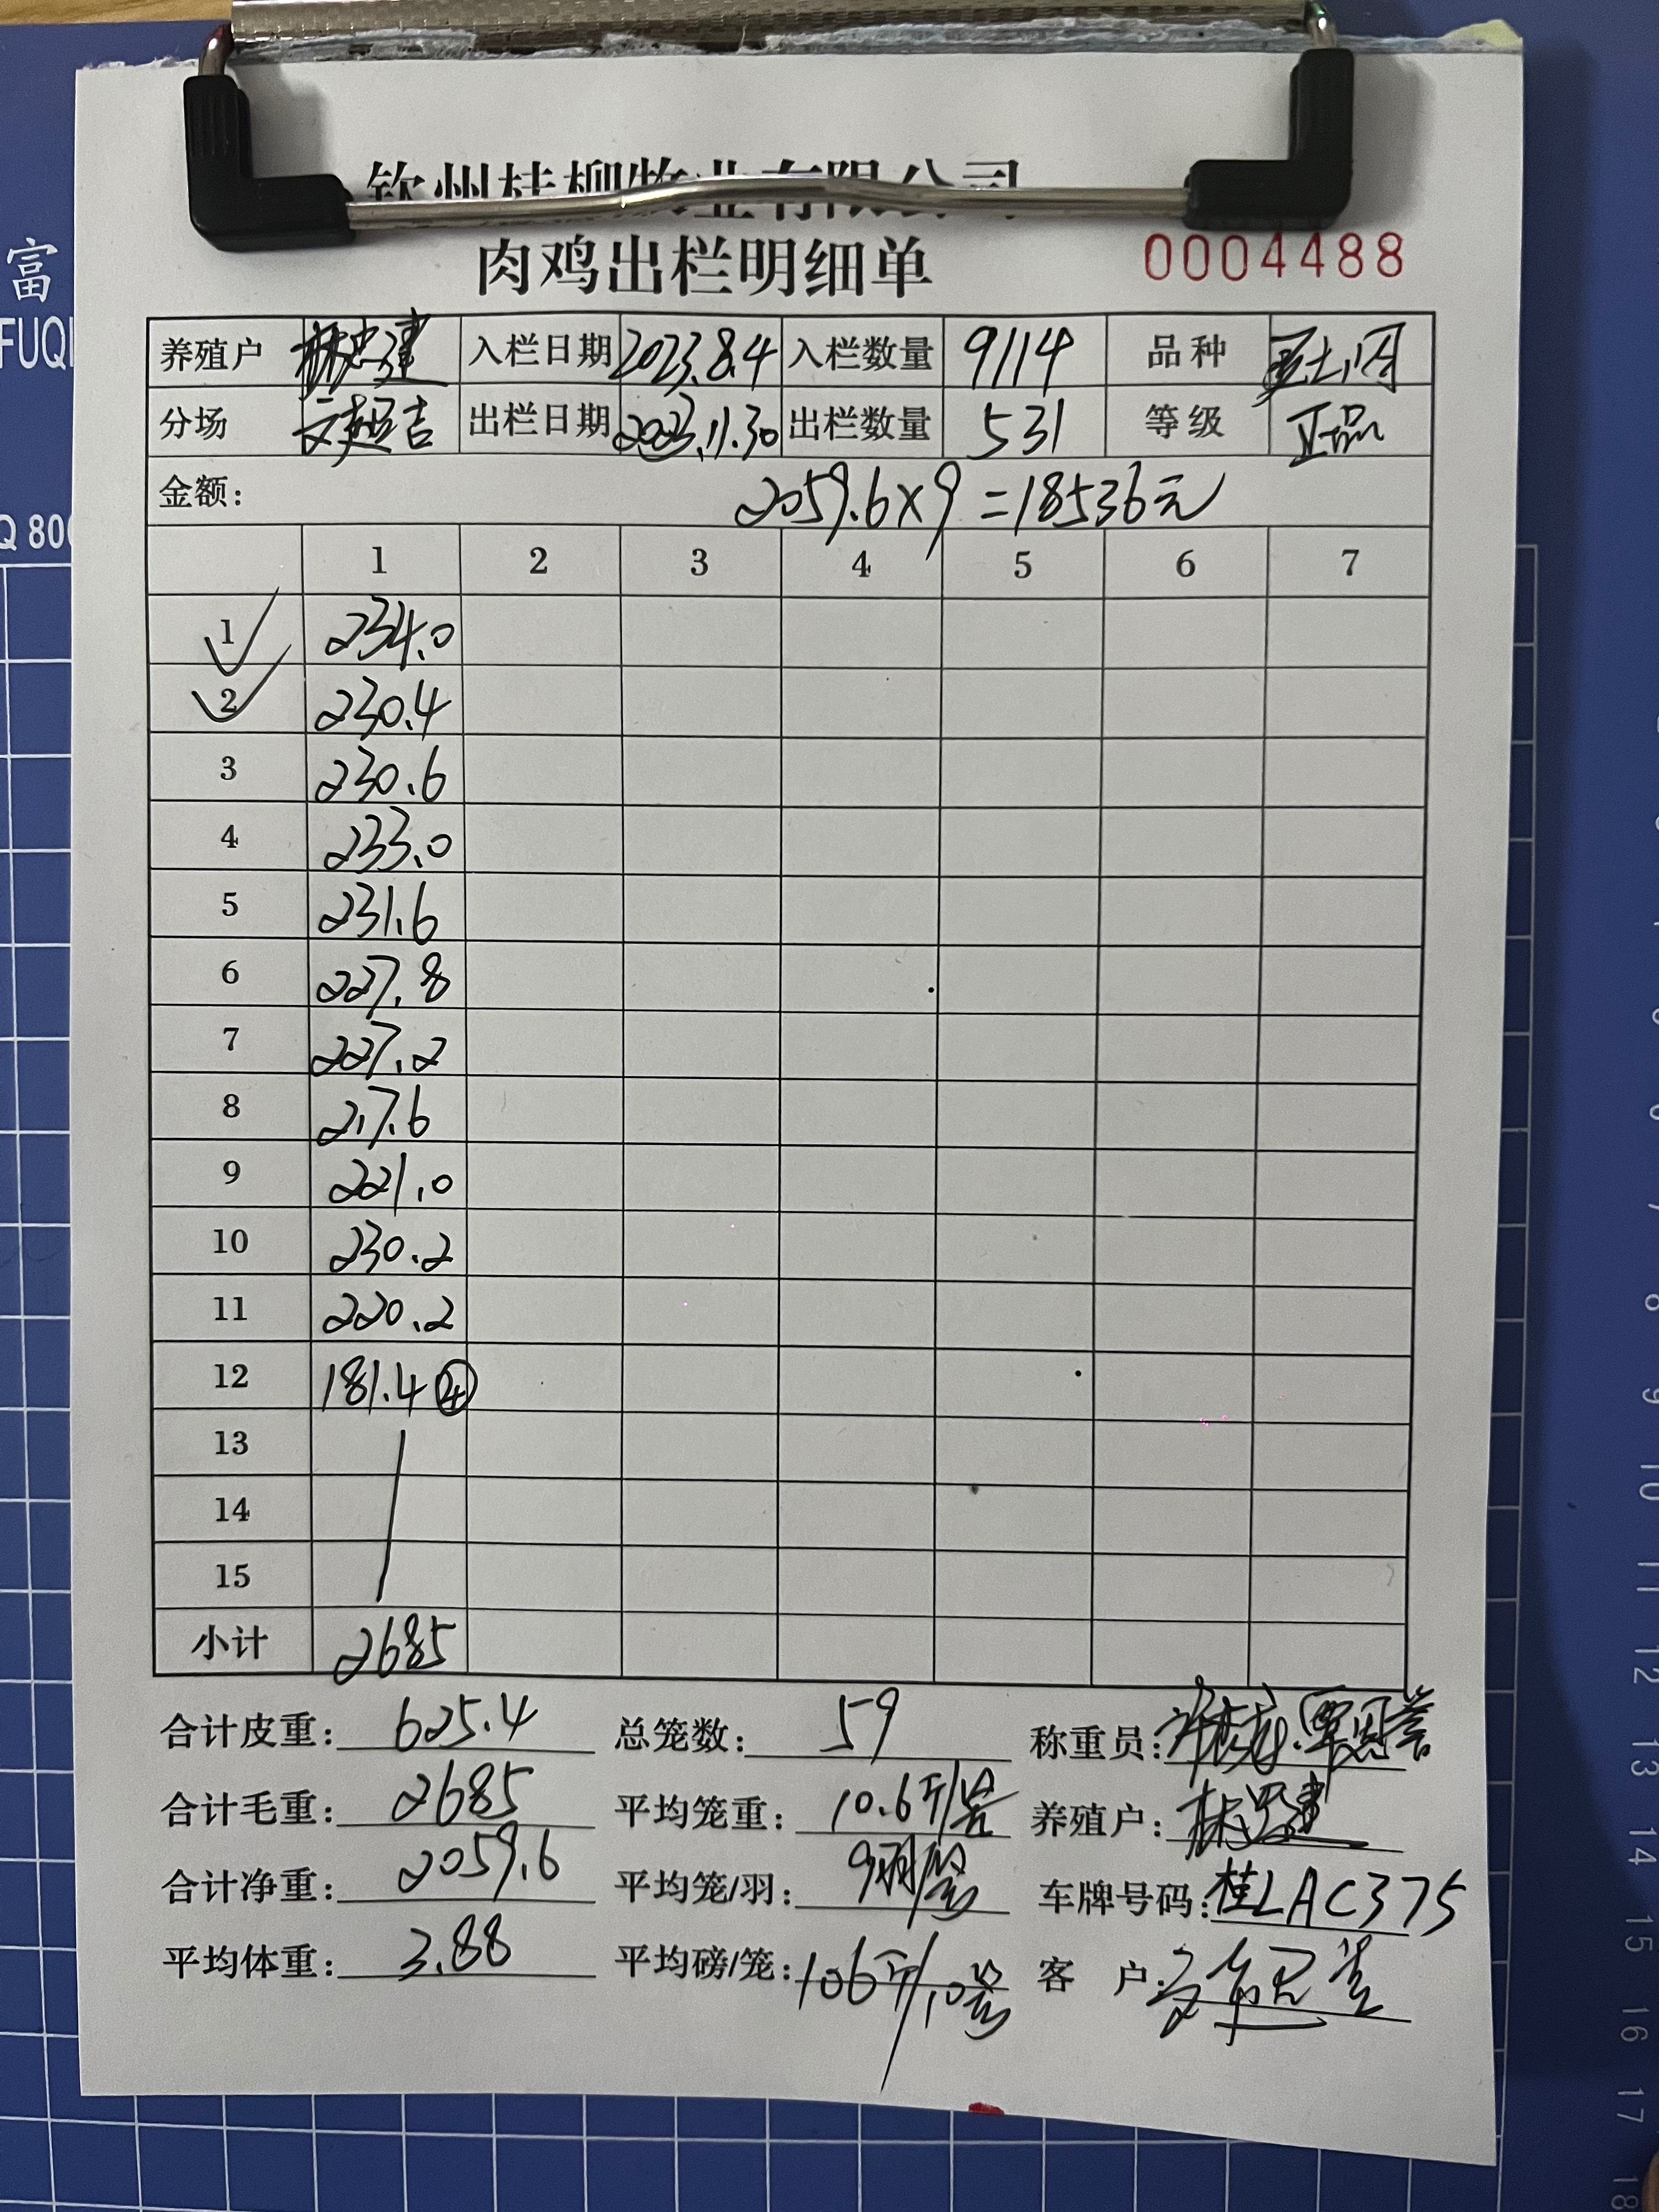 钦州桂柳牧业有限公司
肉鸡出栏明细单 0004488
养殖户 林忠建 入栏日期 2023.8.4 入栏数量 9114 品种
分场 出栏日期 2023.11.30 出栏数量 531 等级 正品
金额: 2059.6×9=18536元
1 2 3 4 5 6 7
1 234.0
2 230.4
3 230.6
4 233.0
5 231.6
6 227.8
7 227.2
8 217.6
9 221.0
10 230.2
11 220.2
12 181.4 ④
13
14
15
小计 2685
合计皮重: 625.4 总笼数: 59 称重员:
合计毛重: 2685 平均笼重: 10.6斤/笼 养殖户: 林忠建
合计净重: 2059.6 平均笼/羽: 9羽/笼 车牌号码: 桂LAC375
平均体重: 3.88 平均磅/笼: 106斤/10笼 客 户:
富
FUQI
Q 800
5
6
7
8
9
10
11
12
13
14
15
16
17
18